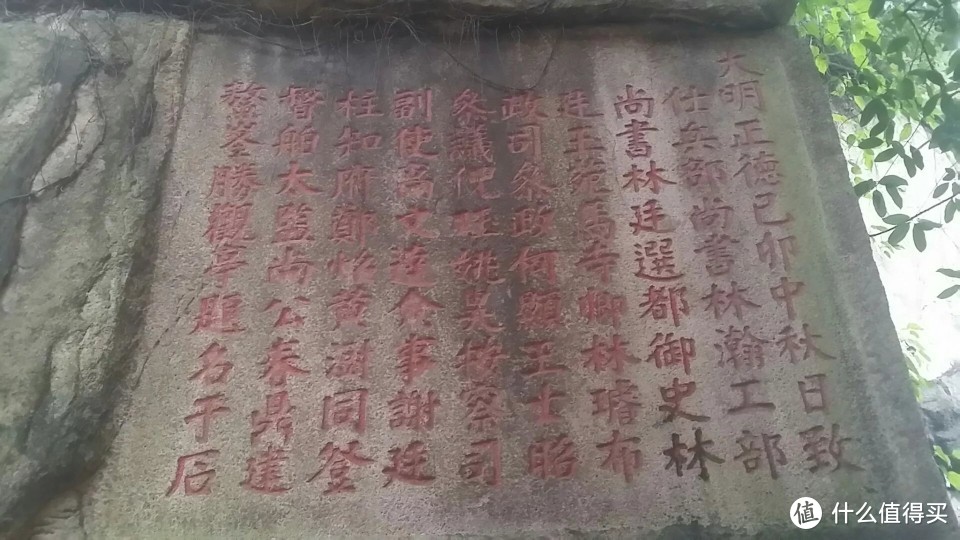 大明正德己卯中秋日致
仕兵部尚書林瀚工部
尚書林廷選都御史林
廷玉苑馬寺卿林璿布
政司叅政何顯王士昭
叅議倪姚昊按察司
副使高文達僉事謝廷
柱知府鄭黄同登
督舶太監尚公春鼎建
鰲峯勝觀亭題名于石
值 什么值得买